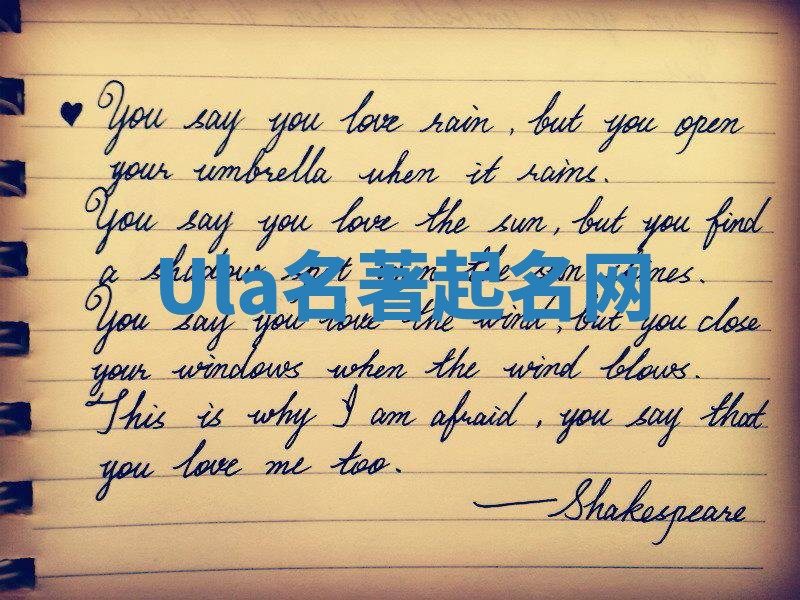 ♥ You say you love rain, but you open
your umbrella when it rains.
You say you love the sun, but you find
a shadow spot when the sun shines.
Ula名著起名网
You say you love the wind, but you close
your windows when the wind blows.
This is why I am afraid, you say that
you love me too.
—Shakespeare